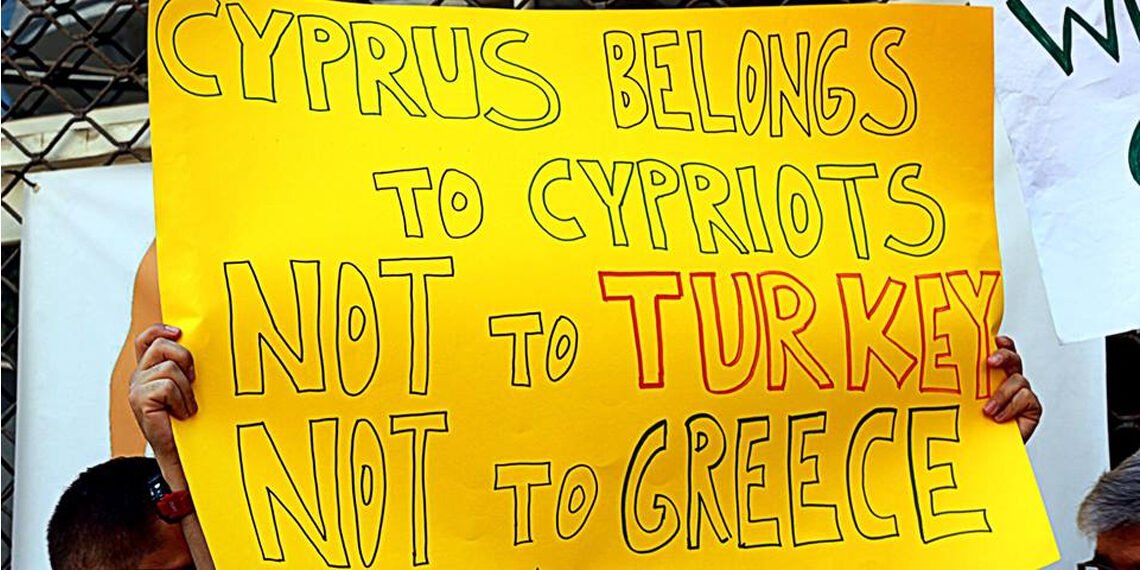 CYPRUS BELONGS
TO CYPRIOTS
NOT TO TURKEY
NOT TO GREECE